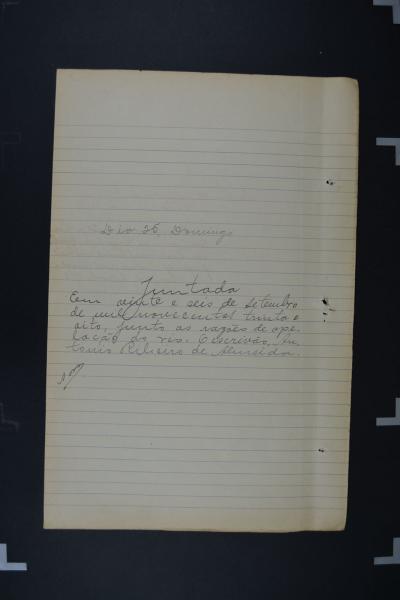 Dia 25, Domingo
Juntada
Em vinte e seis de Setembro
de mil novecentos trinta e
oito, junto as razões de ape-
lação do réo. O escrivão, An-
tonio Ribeiro de Almeida.